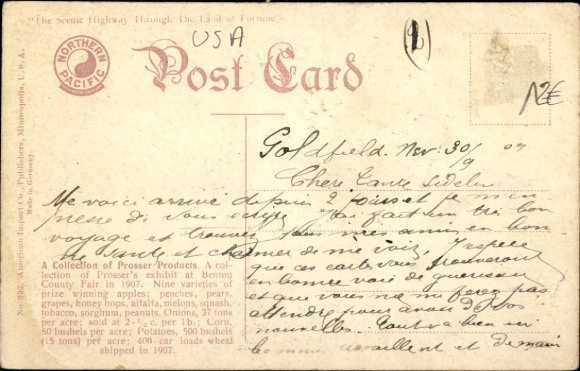 "The Scenic Highway Through The Land of Fortune"
USA
(2)
NORTHERN PACIFIC
Post Card
12€
No. 292. American Import Co., Publishers, Minneapolis, U. S. A.
Made in Germany.
Goldfield. Nev. 30/9 09
Chere Tante
Me voici arrivé depuis 2 jours et je m'em
presse de vous ecrire J'ai fait un très bon
voyage et trouvé mes amis en bon
ne santé et de me voir, J'espère
que ces cartes vous trouveront
en bonne voie de guerison
et que vous ne me ferez pas
attendre pour avoir de vos
nouvelles. Tout va bien ici
travaillent et demain
A Collection of Prosser Products. A col-
lection of Prosser's exhibit at Benton
County Fair in 1907. Nine varieties of
prize winning apples; peaches, pears,
grapes, honey hops, alfalfa, melons, squash,
tobacco, sorghum, peanuts. Onions, 37 tons
per acre; sold at 2-½ c. per lb.; Corn,
50 bushels per acre; Potatoes, 500 bushels
(15 tons) per acre; 400 car loads wheat
shipped in 1907.